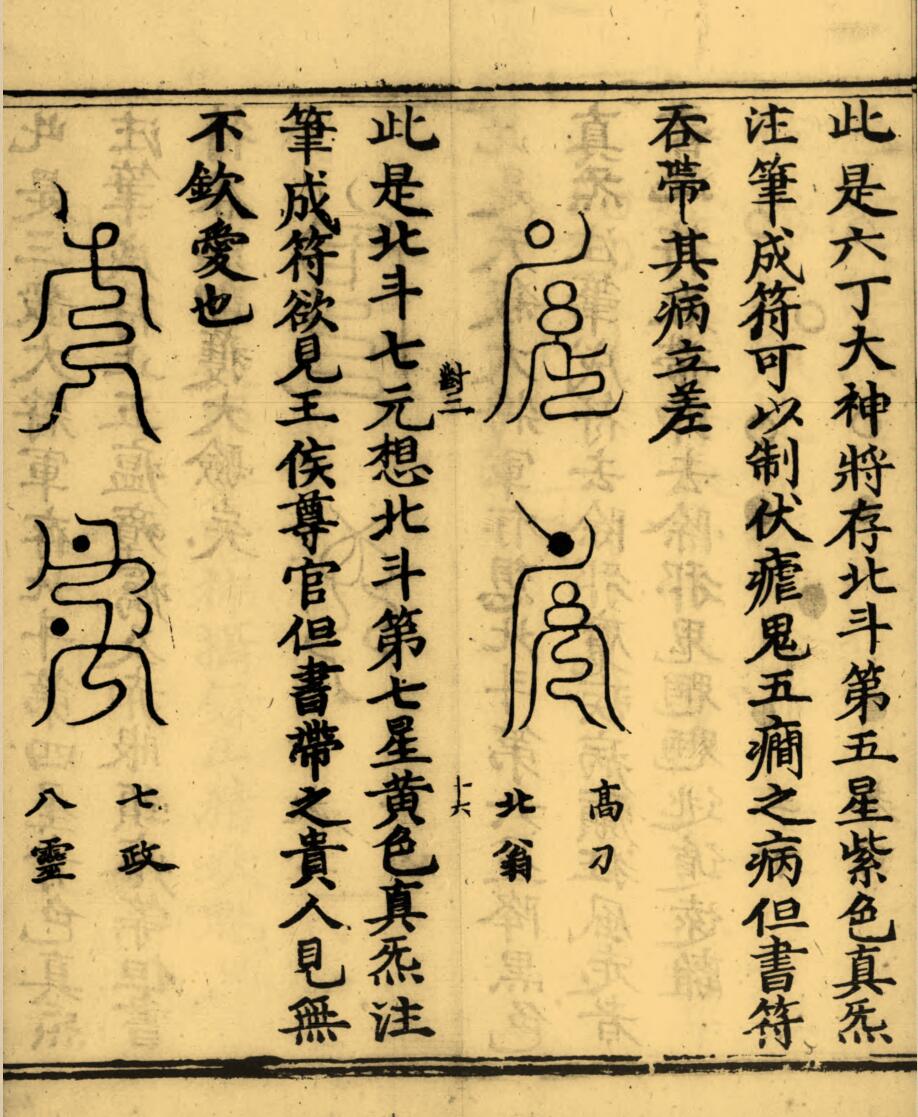 此是六丁大神將存北斗第五星紫色真炁
注筆成符可以制伏瘧鬼五癎之病但書符
吞帶其病立差
高刁
北翁
對二
十六
此是北斗七元想北斗第七星黄色真炁注
筆成符欲見王侯尊官但書帶之貴人見無
不欽愛也
七政
八靈